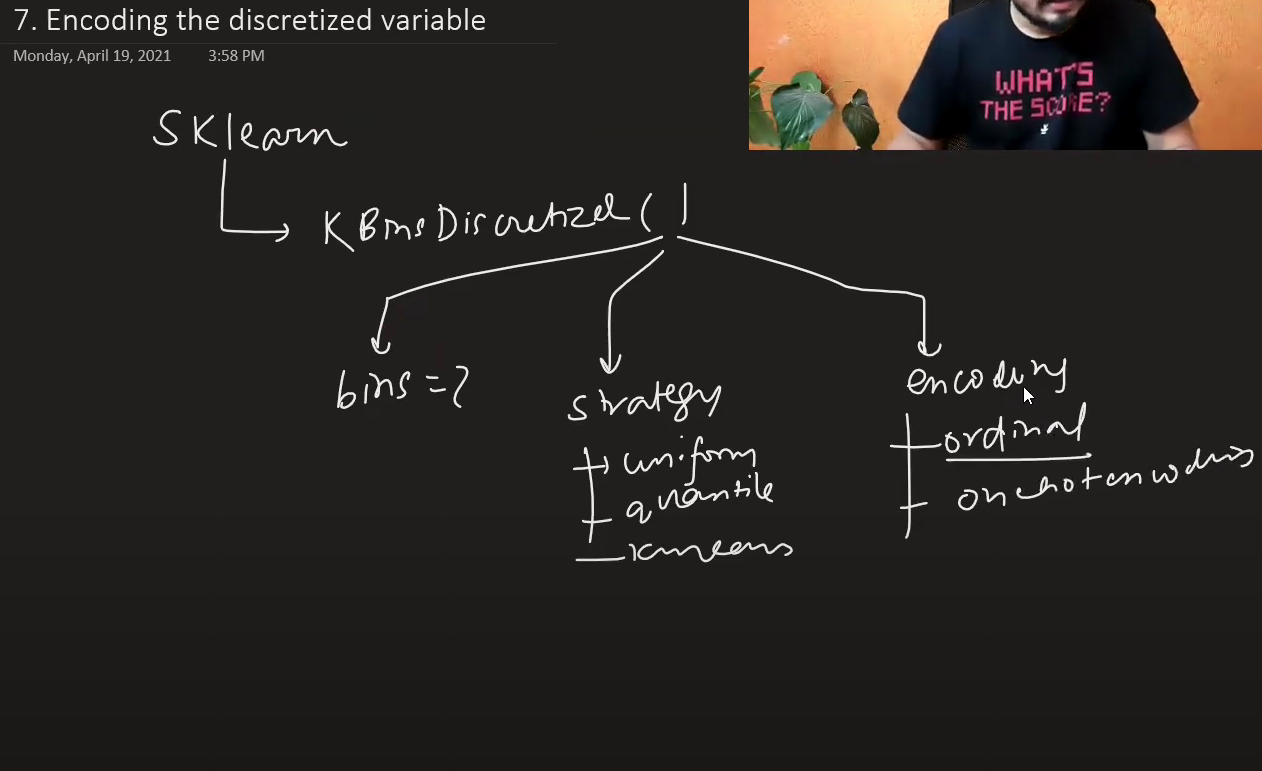 7. Encoding the discretized variable
Monday, April 19, 2021 3:58 PM
WHAT'S
THE SCORE?
SKlearn
KBinsDiscretizer()
bins = ?
strategy
uniform
quantile
kmeans
encoding
ordinal
onehotencoding